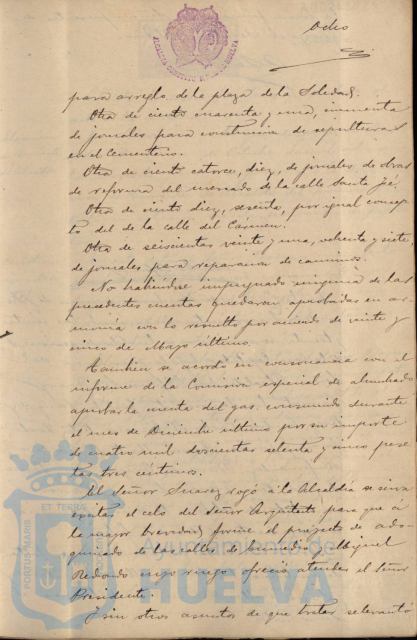 Ocho
ALCALDIA CONSTITUCIONAL HUELVA
para arreglo de la plaza de la Soledad.
Otra de ciento cuarenta y una, cincuenta
de jornales para construccion de sepulturas
en el Cementerio.
Otra de ciento catorce, diez, de jornales de obras
de reforma del mercado de la calle Santa Fé.
Otra de ciento diez, sesenta, por igual concep-
to del de la calle del Cármen.
Otra de seiscientas veinte y una, ochenta y siete,
de jornales para reparacion de caminos.
No habiéndose impugnado ninguna de las
precedentes cuentas quedaron aprobadas en ar-
monia con lo resuelto por acuerdo de veinte y
cinco de Mayo último.
Tambien se acordó en consonancia con el
informe de la Comision especial de alumbrado
aprobar la cuenta del gas consumido durante
el mes de Diciembre último por su importe
de cuatro mil doscientas setenta y cinco pese-
tas tres céntimos.
El Señor Suarez rogó á la Alcaldía se sirva
excitar el celo del Señor Arquitecto para que á
la mayor brevedad forme el proyecto de ado-
quinado de las calles de y Miguel
Redondo cuyo ruego ofreció atender el Señor
Presidente.
Y sin otros asuntos de que tratar se levantó
PORTUS MARIS ET TERRAE
Ayuntamiento de
HUELVA